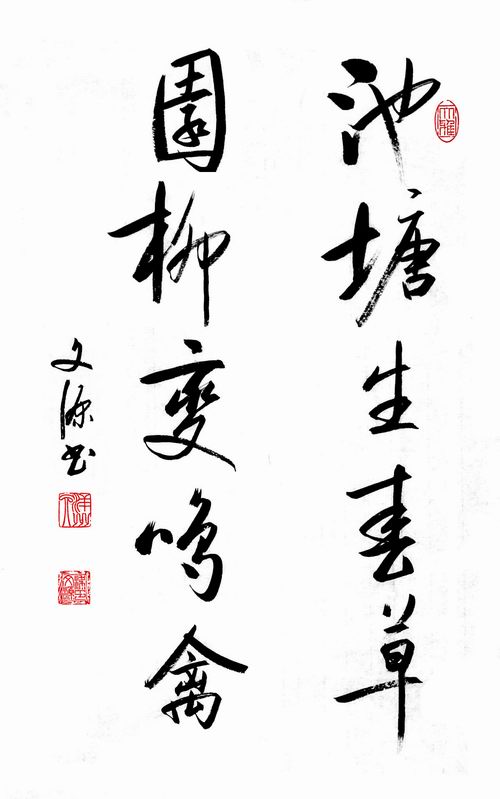 池塘生春草
園柳變鳴禽
文源书